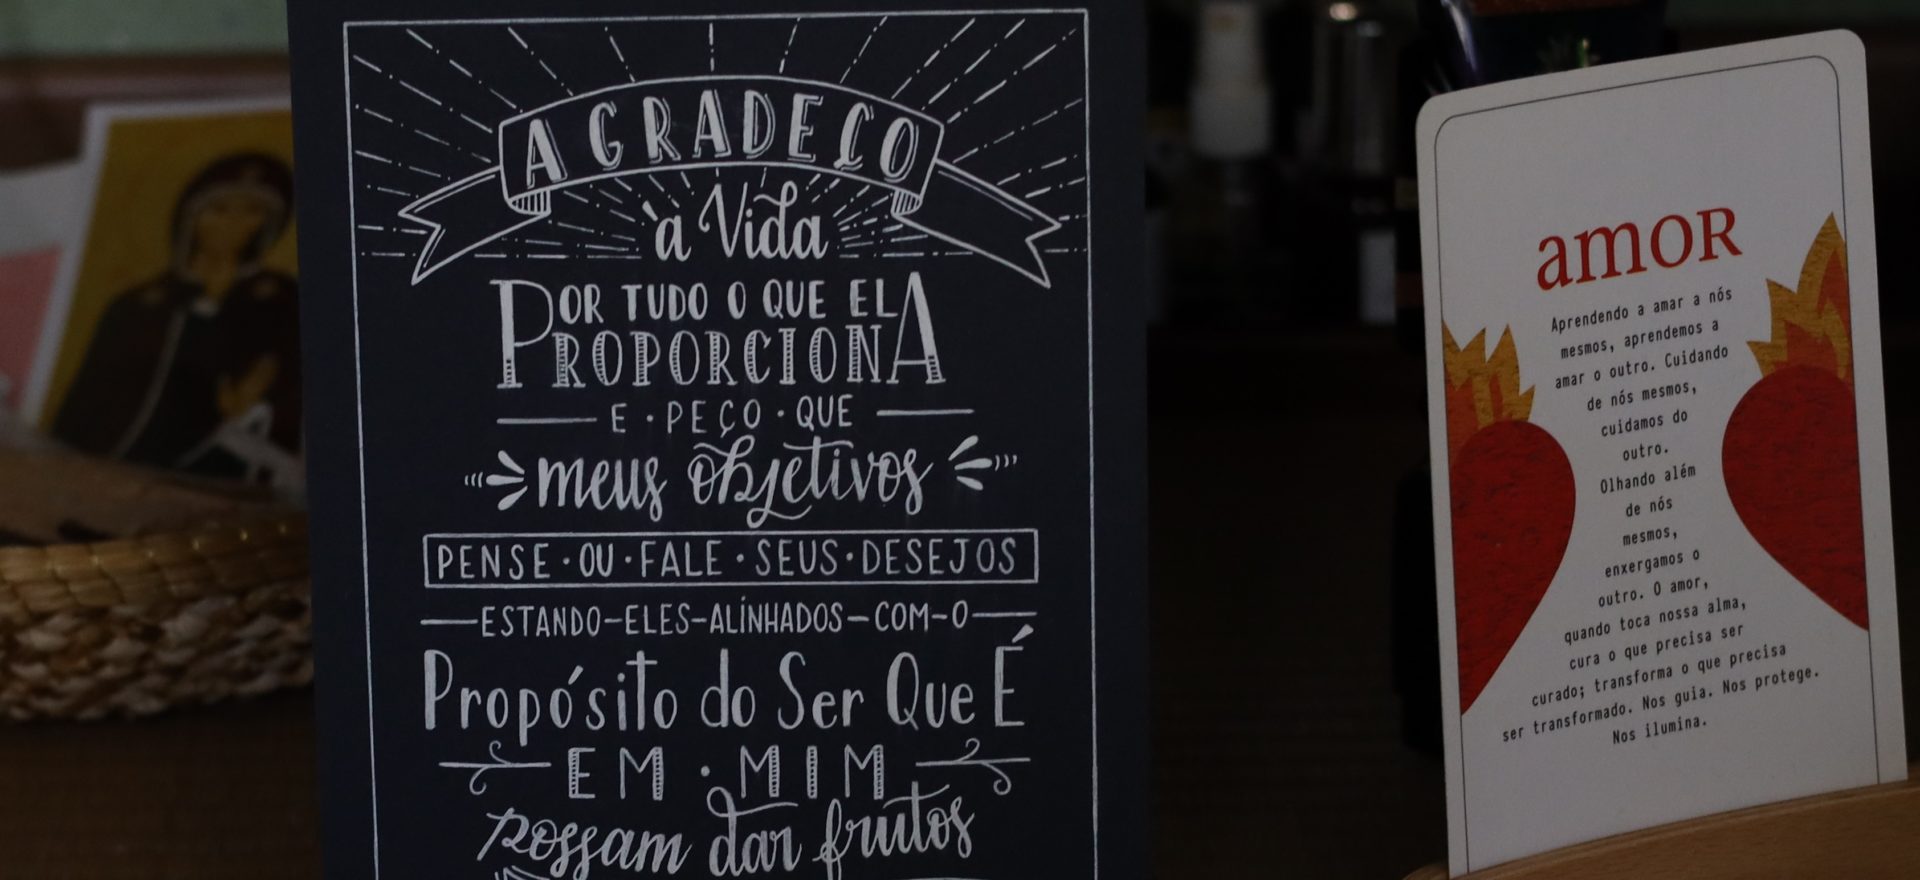 AGRADEÇO
à Vida
POR TUDO O QUE ELA
PROPORCIONA
E · PEÇO · QUE
meus objetivos
PENSE · OU · FALE · SEUS · DESEJOS
ESTANDO-ELES-ALINHADOS-COM-O
Propósito do Ser Que É
EM · MIM
possam dar frutos
amor
Aprendendo a amar a nós
mesmos, aprendemos a
amar o outro. Cuidando
de nós mesmos,
cuidamos do
outro.
Olhando além
de nós
mesmos,
enxergamos o
outro. O amor,
quando toca nossa alma,
cura o que precisa ser
curado; transforma o que precisa
ser transformado. Nos guia. Nos protege.
Nos ilumina.